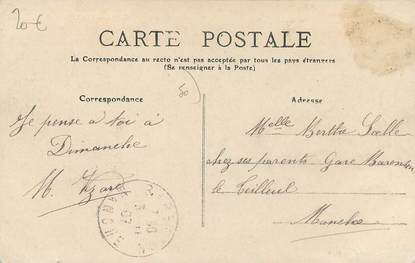 20 €
CARTE POSTALE
La Correspondance au recto n'est pas acceptée par tous les pays étrangers
(Se renseigner à la Poste)
Correspondance
Adresse
50
Je pense a toi à
Dimanche
M.
Melle Berthe
chez ses parents Gare Barenton
le Teilleul
Manche